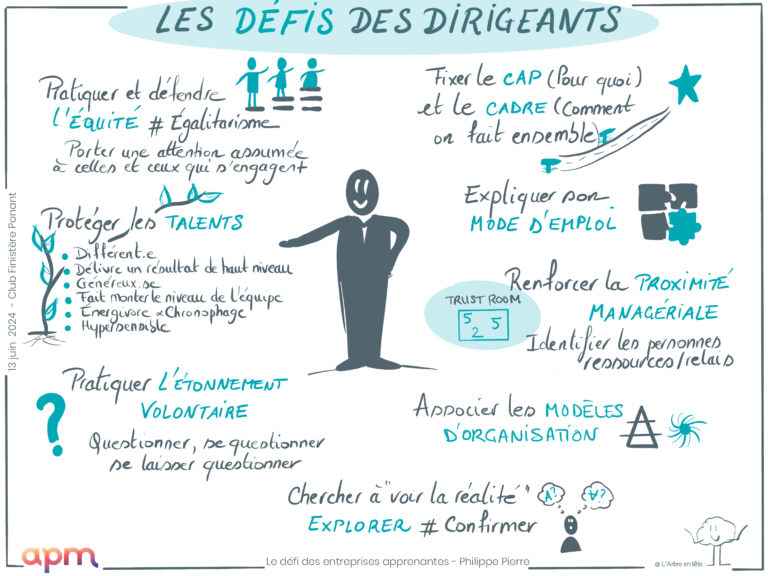 LES DÉFIS DES DIRIGEANTS
Pratiquer et défendre
l'ÉQUITÉ # Égalitarisme
Porter une attention assumée
à celles et ceux qui s'engagent
Protéger les TALENTS
Différent.e
Délivre un résultat de haut niveau
Généreux.se
Fait monter le niveau de l'équipe
Énergivore & Chronophage
Hypersensible
Pratiquer L'ÉTONNEMENT
VOLONTAIRE
?
Questionner, se questionner
se laisser questionner
Fixer le CAP (Pour quoi)
et le CADRE (Comment
on fait ensemble)
Expliquer son
MODE D'EMPLOI
Renforcer la PROXIMITÉ
MANAGÉRIALE
Identifier les personnes
ressources/relais
TRUST ROOM
5 5
2
Associer les MODÈLES
D'ORGANISATION
Chercher à "voir la réalité"
EXPLORER # Confirmer
A?
∀?
13 juin 2024 - Club Finistère Ponant
apm
Le défi des entreprises apprenantes - Philippe Pierre
@ L'Arbre en tête